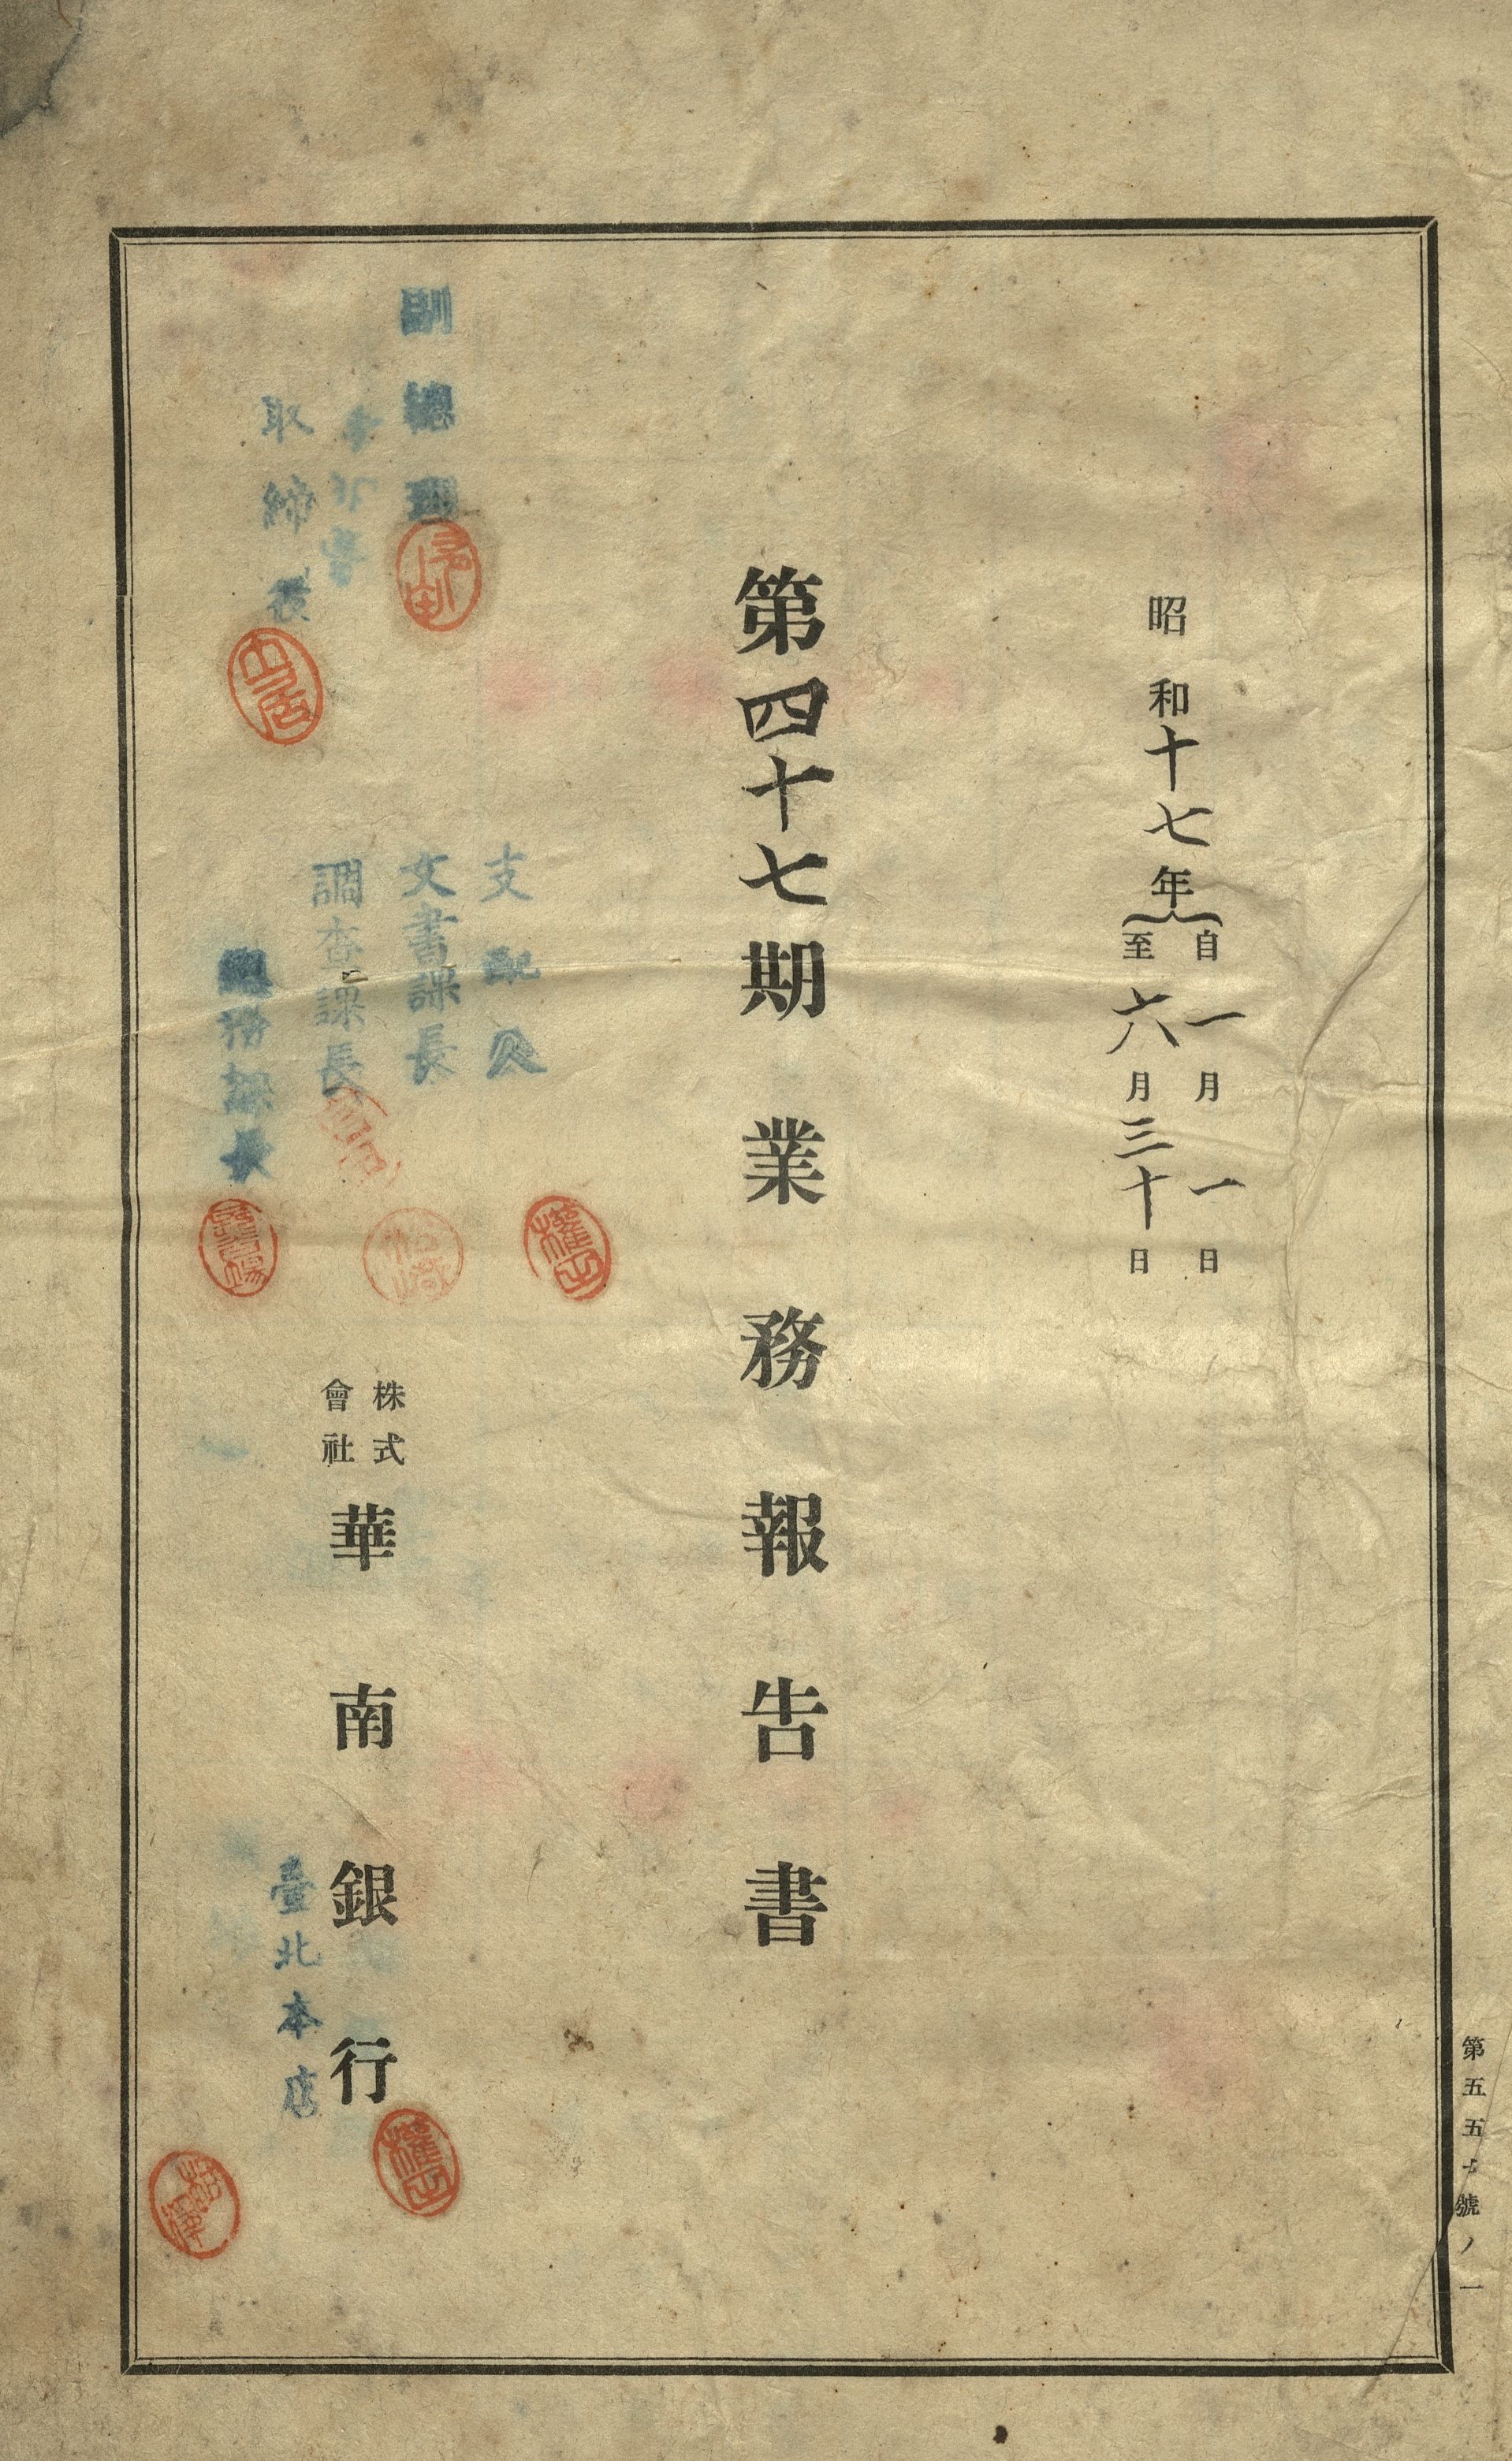 昭和十七年
自一月一日
至六月三十日
第四十七期業務報告書
副總理
取締役
支配人
文書課長
調査課長
總務課長
株式
會社
華南銀行
臺北本店
權正
權正